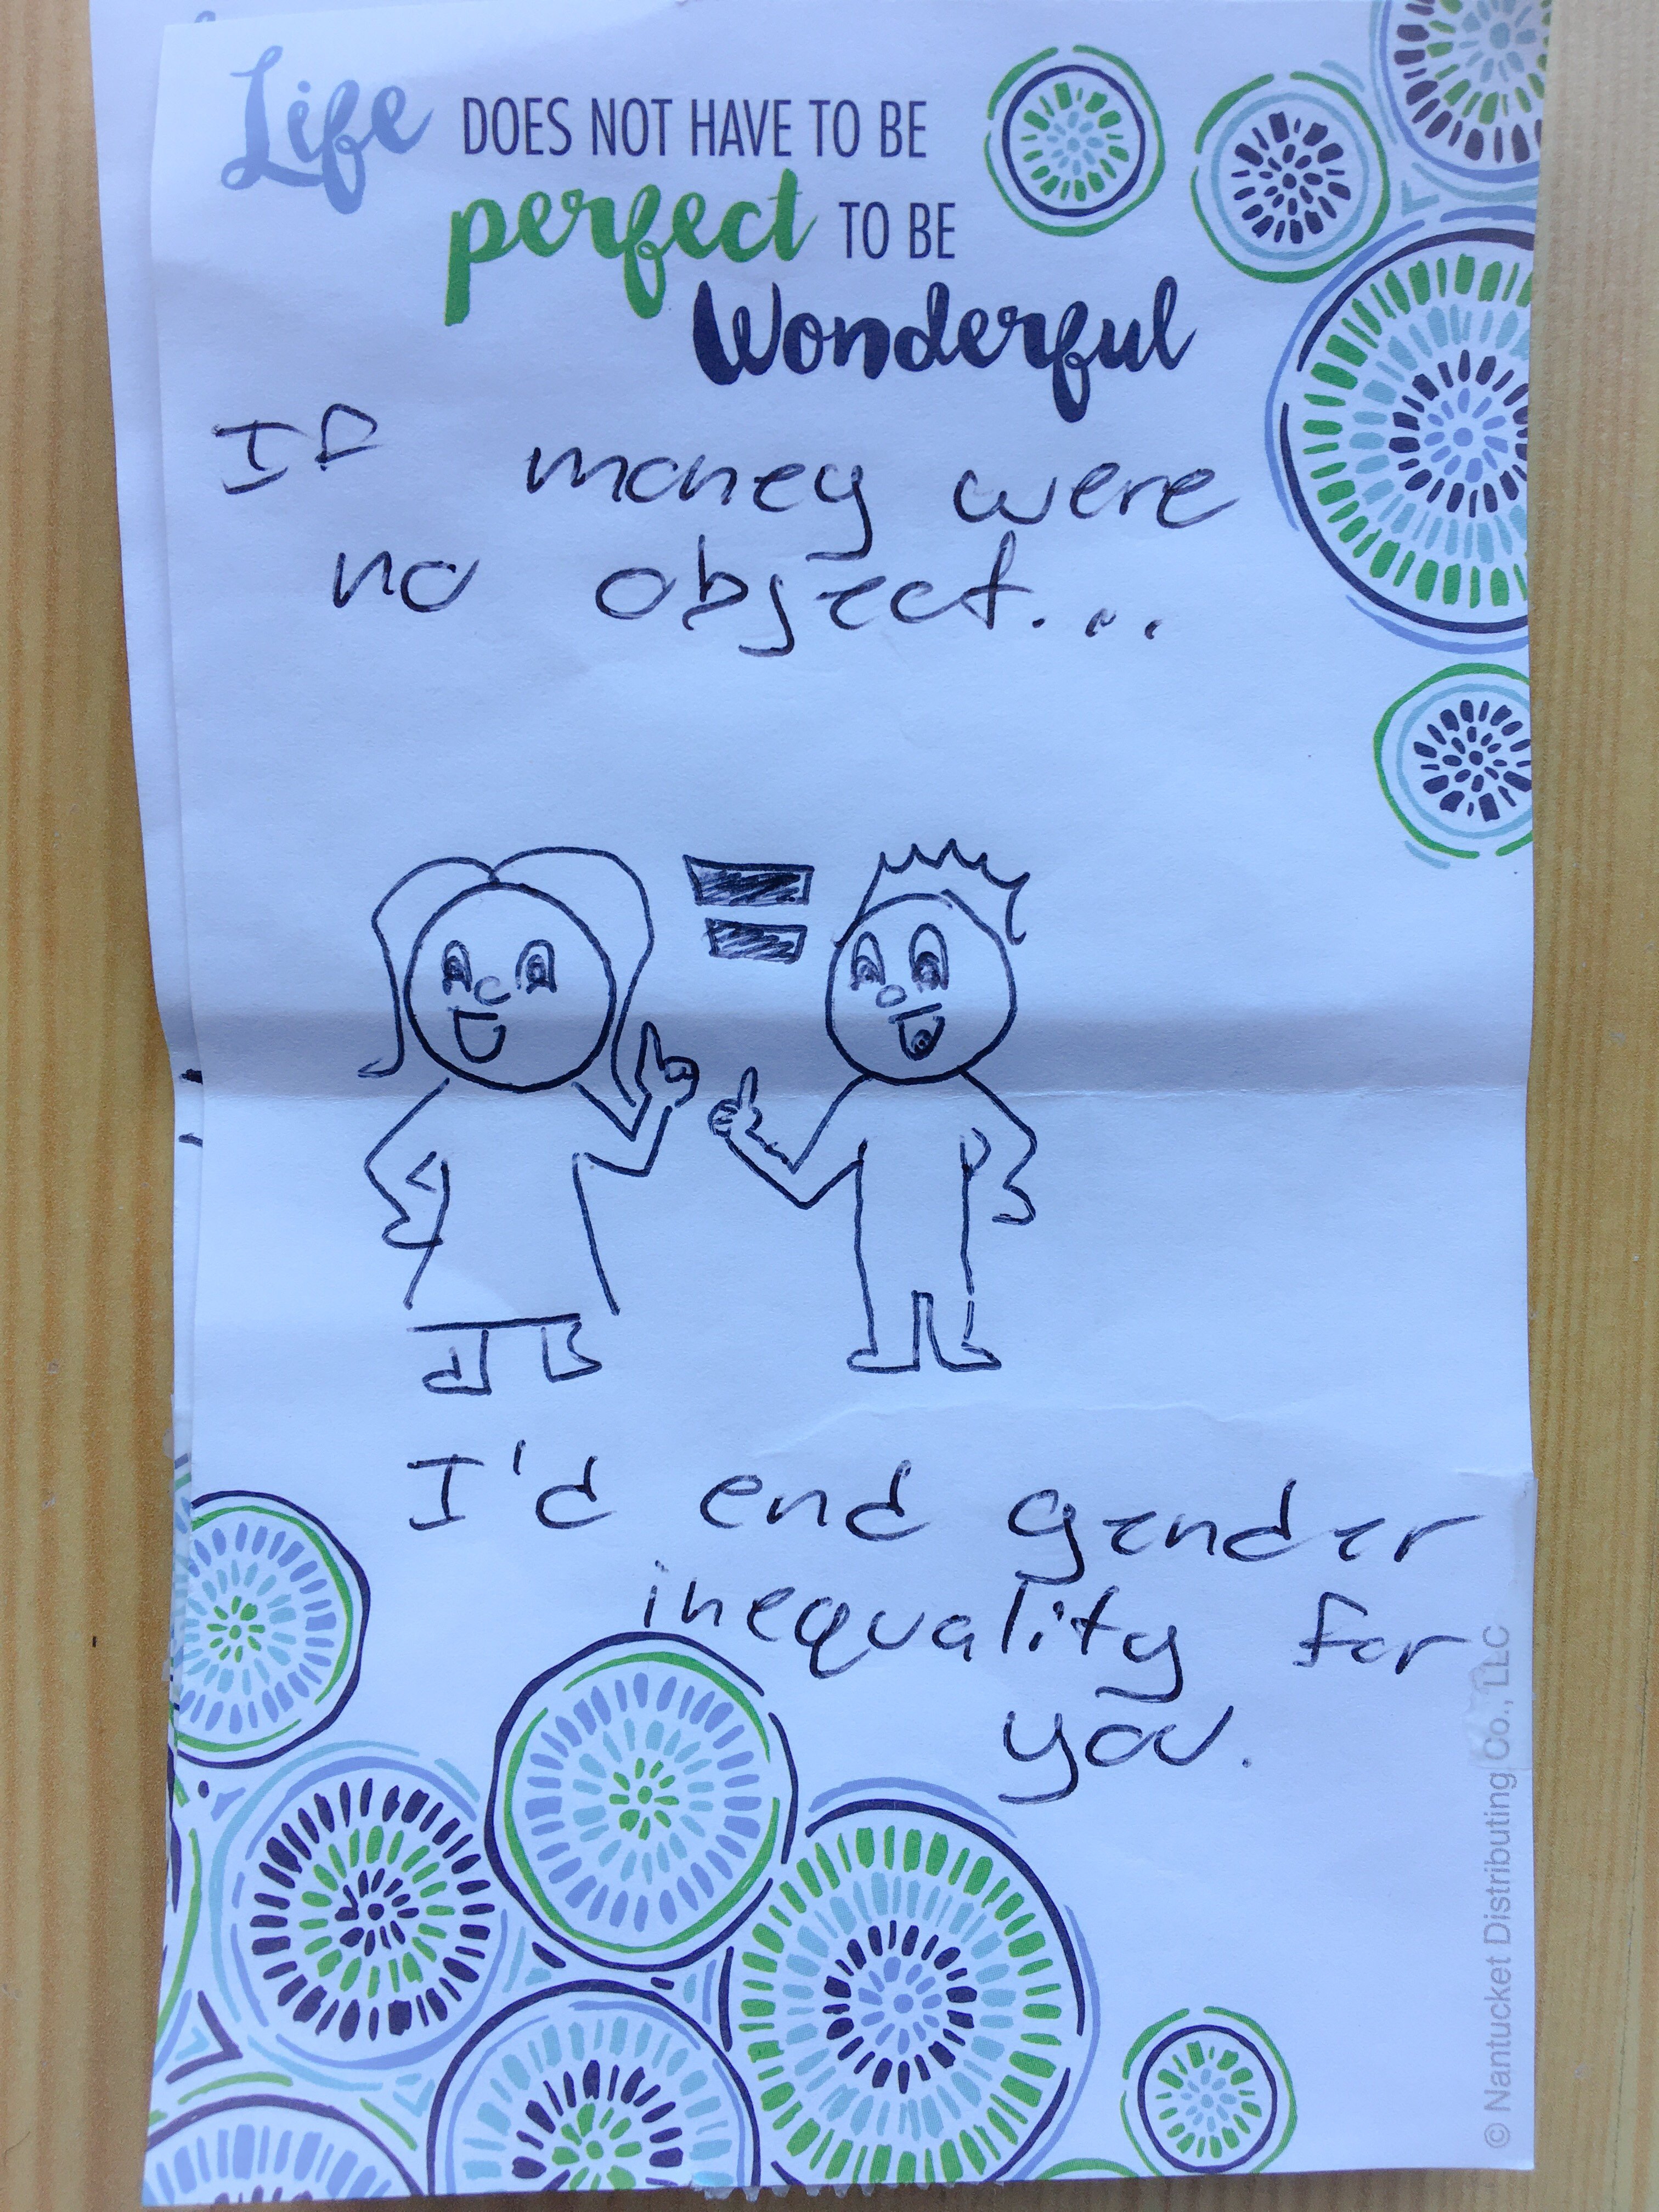 Life DOES NOT HAVE TO BE
perfect TO BE
Wonderful
If money were
no object...
I'd end gender
inequality for
you.
© Nantucket Distributing Co., LLC